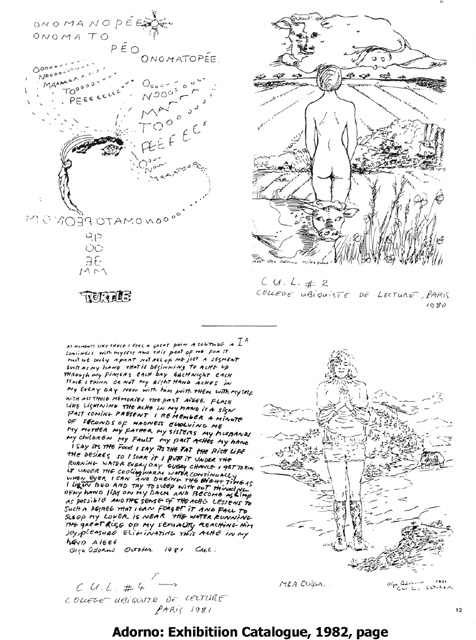 ONOMANOPÉE
ONOMATO
PÉO
ONOMATOPÉE
TOOOO
PEEEEEEEE
NOOOO
TOOO
TURTLE
C.U.L. #2
COLLEGE UBIQUISTE DE LECTURE, PARIS
1980
AT MOMENTS LIKE THESE I FEEL A GREAT PAIN A SOLITUDE A
LONELINESS WITH MYSELF AND THIS PART OF ME FOR IT
MUST BE ONLY A PART NOT ALL OF ME JUST A SEGMENT
SUCH AS MY HAND THAT IS BEGINNING TO ACHE UP
THROUGH MY FINGERS EACH DAY EACH NIGHT EACH
TIME I THINK OR NOT MY RIGHT HAND ACHES IN
MY EVERY DAY NOW WITH HIM WITH THEM WITH MYSELF
WITH ALL THOSE MEMORIES THE PAST AIEEE FLASH
LIKE LIGHTNING THE ACHE IN MY HAND IS A SIGN
PAST COMING PRESENT I REMEMBER A MINUTE
OF SECONDS OF MADNESS EVOLVING ME
MY MOTHER MY FATHER MY SISTERS MY HUSBANDS
MY CHILDREN MY FAULT MY PAST ACHES MY HAND
I SAY ITS THE FOOD I SAY ITS THE FAT THE RICH LIFE
THE DESIRES SO I SOAK IT I PUT IT UNDER THE
RUNNING WATER EVERYDAY EVERY CHANCE I GET TO RUN
IT UNDER THE COOL WARM WATER CONTINUALLY
WHEN EVER I CAN AND DURING THE NIGHT TIME AS
I LAY IN BED AND TRY TO SLEEP WITH OUT THINKING
OF MY HAND I LAY ON MY BACK AND BECOME AS LIMP
AS POSSIBLE AND THE SENSE OF THE ACHE LESSENS TO
SUCH A DEGREE THAT I CAN FORGET IT AND FALL TO
SLEEP MY LOVER IS NEAR THE WATER RUNNING
THE GREAT RISE UP OF MY SEXUALITY REACHING HIM
JOY, PLEASURE ELIMINATING THIS ACHE IN MY
HAND AIEEE
Olga Adorno October 1981 CUL.
C.U.L. #4
COLLEGE UBIQUISTE DE LECTURE
PARIS 1981
MEA CULPA...
Olga Adorno 1981
12
Adorno: Exhibitiion Catalogue, 1982, page